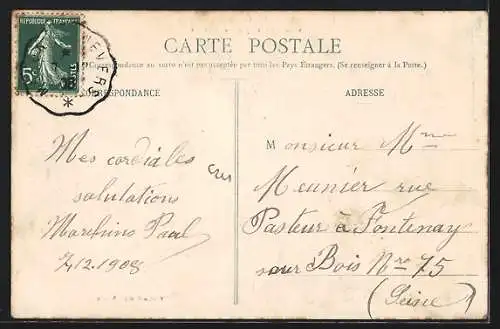 REPUBLIQUE FRANÇAISE
5c
POSTES
NEVERS
CARTE POSTALE
Correspondance au recto n'est pas acceptée par tous les Pays Étrangers. (Se renseigner à la Poste.)
CORRESPONDANCE
ADRESSE
Mes cordiales
salutations
Paul
7.12.1908
Monsieur Mme
Meunier rue
Pasteur à Fontenay
sous Bois Nro 75
(Seine)